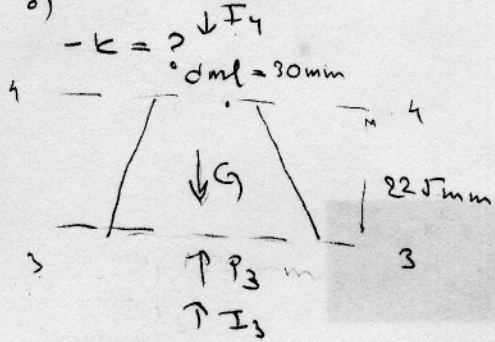 8)
↓ I4
- K = ?
dml = 30mm
4 4
↓ G
225mm
3 3
↑ P3
↑ I3